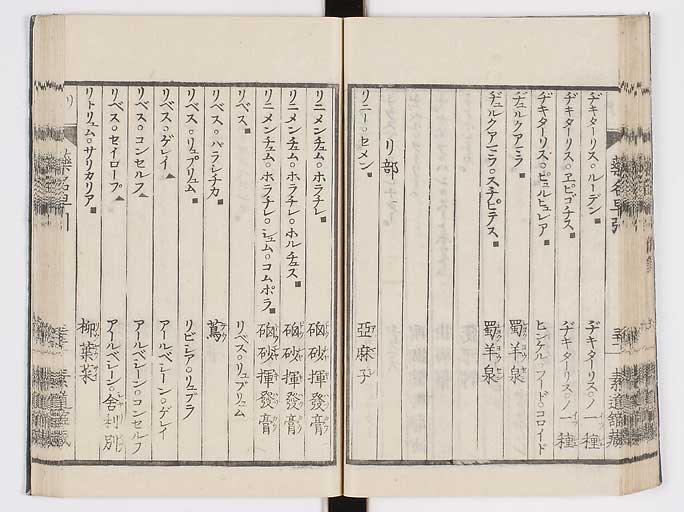 ヂキターリス。ルーデン ヂキターリスノ一種
ヂキターリス。ヱピゴチス ヂキターリスノ一種
ヂキターリス。ピュルピュレア ヒンケルフードコロイド
ヂュルクアミラ 蜀羊泉
ヂュルクアミラ。スチピテス 蜀羊泉
リ部
リニー。セメン 亞麻子
リニメンチュム。ホラチレ 硇砂揮發膏
リニメンチュム。ホラチレ。ホルチュス 硇砂揮發膏
リニメンチュム。ホラチレ。シュム。コムポラ 硇砂揮發膏
リベス リベス。リュブリュム
リベス。バラレチカ
リベス。リュプリュム リビレア。リュブラ
リベス。ゲレイ アールベレーン。ゲレイ
リベス。コンセルフ アールベレーン。コンセルフ
リベス。セイロープ アールベレーン。舎利別
リトリュム。サリカリア 柳葉菜
藥名早引